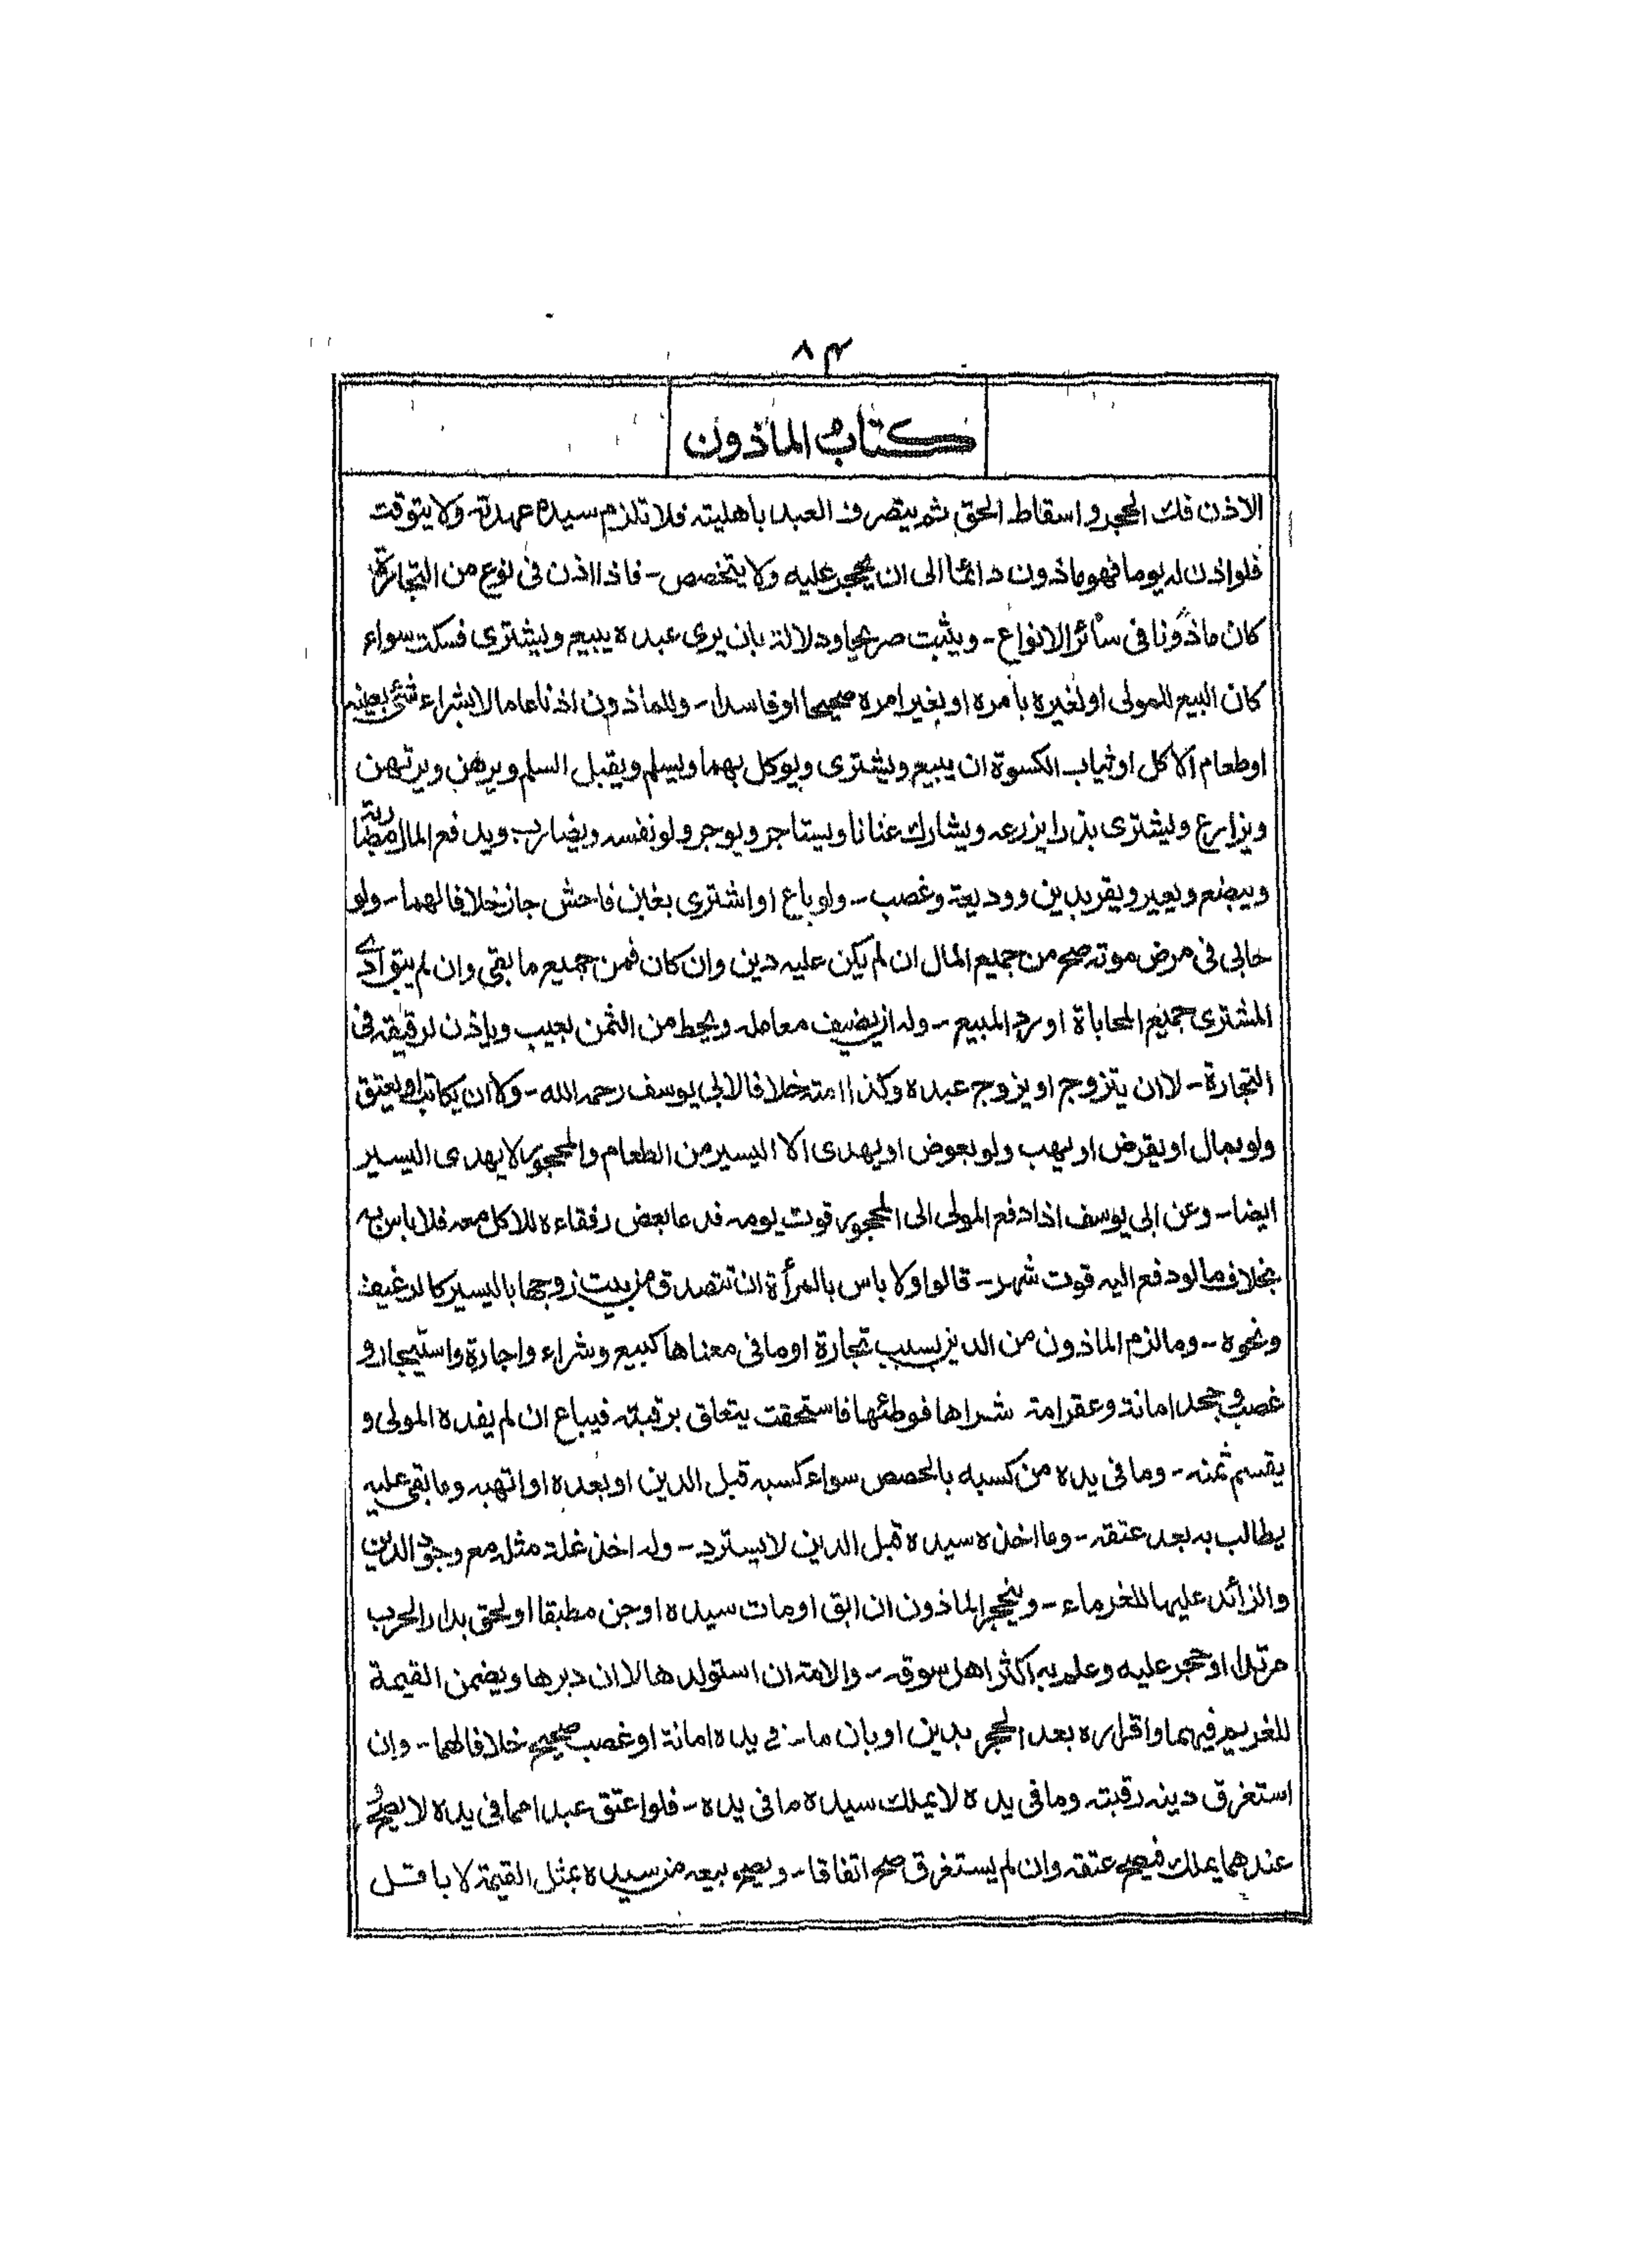 ٨٣
كتاب الماذون
الاذن فك الحجر واسقاط الحق ثم يتصرف العبد باهليته فلا تلزم سيده عهدته ولا يتوقت
فلو اذن له يوما فهو ماذون دائما الى ان يحجر عليه ولا يتخصص - فاذا اذن فى نوع من التجارة
كان ماذونا فى سائر الانواع - ويثبت صريحا ودلالة بان يرى عبده يبيع ويشترى فسكت سواء
كان البيع للمولى او لغيره بامره او بغير امره صحيحا او فاسدا - وللماذون اذنا عاما لا بشراء شئ بعينه
او طعام الاكل او ثياب الكسوة ان يبيع ويشترى ويوكل بهما ويسلم ويقبل السلم ويرهن ويرتهن
ويزارع ويشترى بذرا يزرعه ويشارك عنانا ويستاجر ويوجر ولو نفسه ويضارب ويدفع المال مضاربة
ويبضع ويعير ويقر بدين ووديعة وغصب - ولو باع او اشترى بغبن فاحش جاز خلافا لهما - ولو
حابى فى مرض موته صح من جميع المال ان لم يكن عليه دين وان كان فمن جميع ما بقى وان لم يبق ادى
المشترى جميع المحاباة او رد المبيع - وله ان يضيف معامله ويحط من الثمن بعيب وياذن لرقيقه فى
التجارة - لا ان يتزوج او يزوج عبده وكذا امته خلافا لابى يوسف رحمه الله - ولا ان يكاتب او يعتق
ولو بمال او يقرض او يهب ولو بعوض او يهدى الا اليسير من الطعام والمحجور لا يهدى اليسير
ايضا - وعن ابى يوسف اذا دفع المولى الى المحجور قوت يومه فدعا بعض رفقاءه للاكل معه فلا باس به
بخلاف ما لو دفع اليه قوت شهر - قالوا ولا باس بالمرأة ان تتصدق من بيت زوجها باليسير كالرغيف
ونحوه - وما لزم الماذون من الدين بسبب تجارة او ما فى معناها كبيع وشراء واجارة واستيجار و
غصب وجحد امانة وعقر امة شراها فوطئها فاستحقت يتعلق برقبته فيباع ان لم يفده المولى و
يقسم ثمنه - وما فى يده من كسبه بالحصص سواء كسبه قبل الدين او بعده او اتهبه وما بقى عليه
يطالب به بعد عتقه - وما اخذه سيده قبل الدين لا يسترد - وله اخذ غلة مثله مع وجود الدين
والزائد عليها للغرماء - وينحجر الماذون ان ابق او مات سيده او جن مطبقا او لحق بدار الحرب
مرتدا او حجر عليه وعلم به اكثر اهل سوقه - والامة ان استولدها لا ان دبرها ويضمن القيمة
للغريم فيهما واقراره بعد الحجر بدين او بان ما فى يده امانة او غصب صحيح خلافا لهما - وان
استغرق دينه رقبته وما فى يده لا يملك سيده ما فى يده - فلو اعتق عبدا مما فى يده لا يصح
عندهما يملك فيصح عتقه وان لم يستغرق صح اتفاقا - ويصح بيعه من سيده بمثل القيمة لا باقل